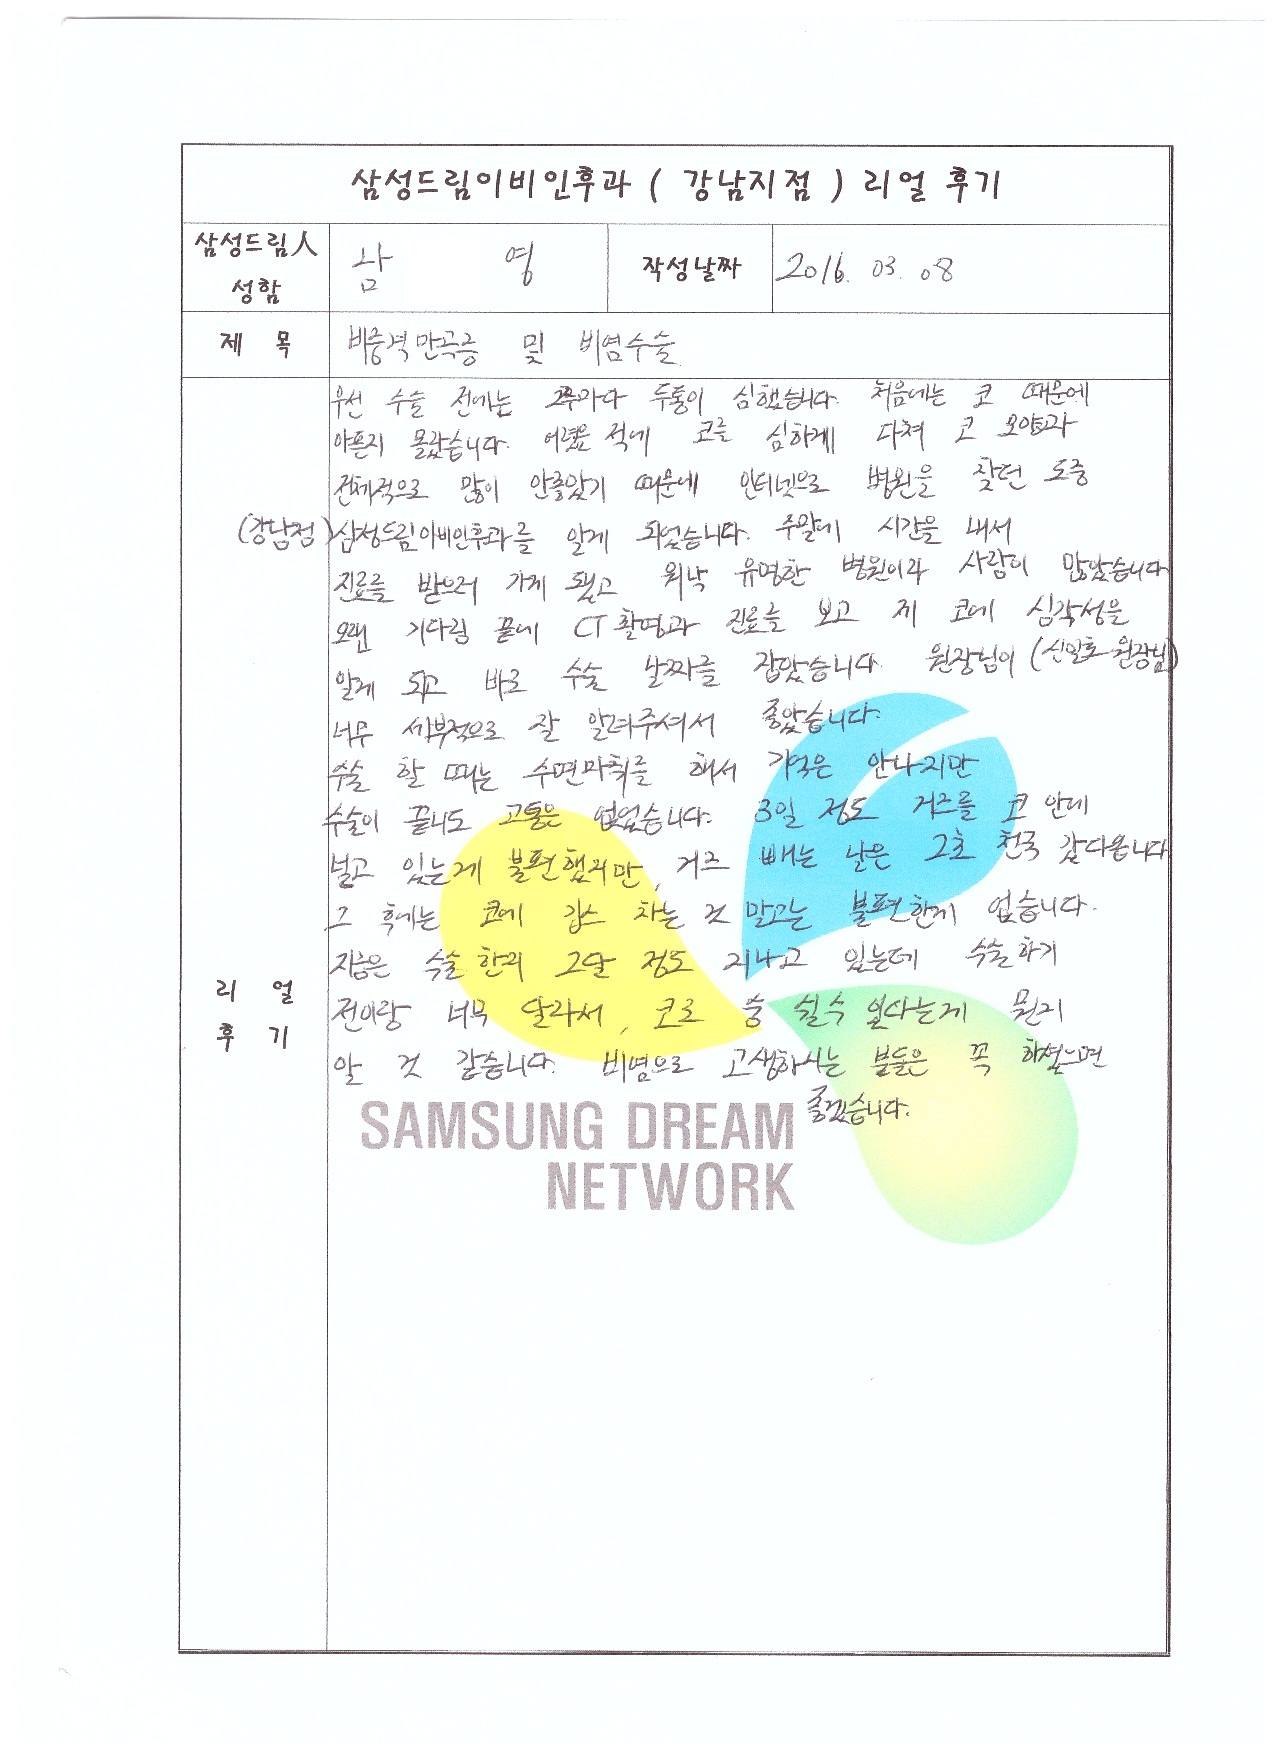 삼성드림이비인후과 ( 강남지점 ) 리얼 후기
삼성드림人 성함 남 영 작성날짜 2016. 03. 08
제 목 비중격만곡증 및 비염수술
우선 수술 전에는 2주마다 두통이 심했습니다. 처음에는 코 때문에
아픈지 몰랐습니다. 어렸을 적에 코를 심하게 다쳐 코 모양과
전체적으로 많이 안좋았기 때문에 인터넷으로 병원을 찾던 도중
(강남점) 삼성드림이비인후과를 알게 되었습니다. 주말에 시간을 내서
진료를 받으러 가게 됐고 워낙 유명한 병원이라 사람이 많았습니다
오랜 기다림 끝에 CT촬영과 진료를 보고 제 코에 심각성을
알게 되고 바로 수술 날짜를 잡았습니다. 원장님이 (신일호 원장님)
너무 세부적으로 잘 알려주셔서 좋았습니다.
수술 할 때는 수면마취를 해서 기억은 안나지만
수술이 끝나도 고통은 없었습니다. 3일 정도 거즈를 코 안에
넣고 있는게 불편했지만, 거즈 빼는 날은 2초 천국 갔다옵니다
그 후에는 코에 깁스 차는 것 말고는 불편한게 없습니다.
지금은 수술한지 2달 정도 지나고 있는데 수술하기
전이랑 너무 달라서, 코로 숨 쉴수 있다는게 뭔지
알 것 같습니다. 비염으로 고생하시는 분들은 꼭 하셨으면
좋겠습니다.
리 얼
후 기
SAMSUNG DREAM
NETWORK